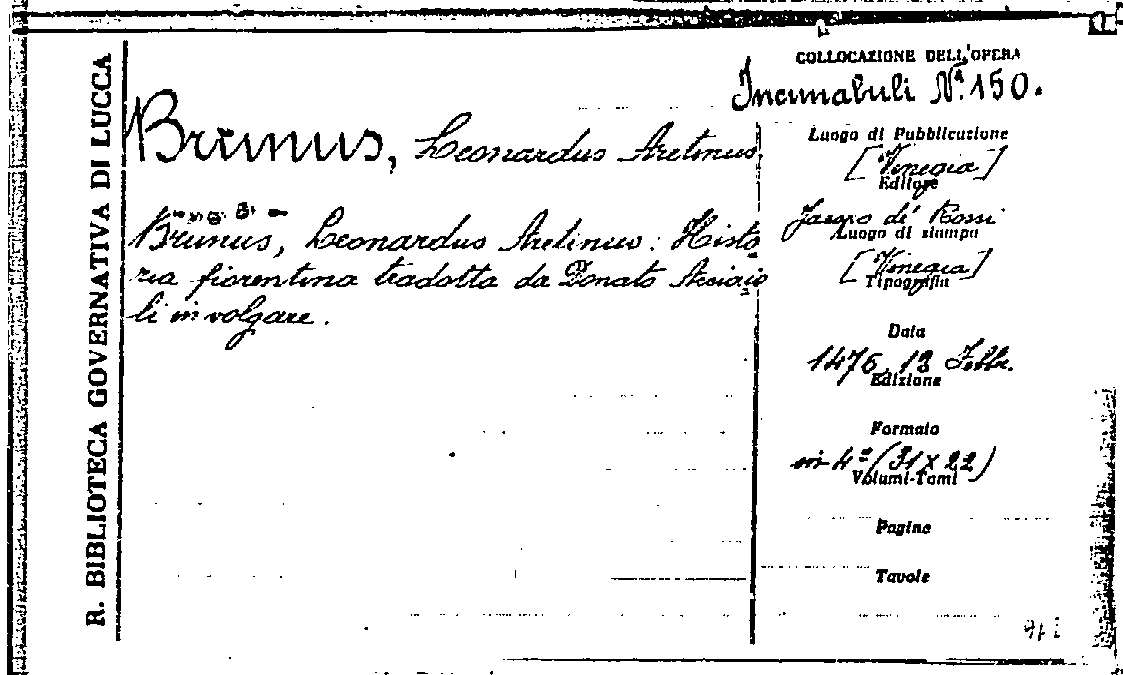 R. BIBLIOTECA GOVERNATIVA DI LUCCA
Brunus, Leonardus Aretinus,
Brunus, Leonardus Aretinus: Histo
ria fiorentina tradotta da Donato Acciaio
li in volgare.
COLLOCAZIONE DELL'OPERA
Incunabuli Nº 150.
Luogo di Pubblicazione
[Venezia]
Editore
Jacopo de' Rossi
Luogo di stampa
[Venezia]
Tipografia
Data
1476, 12 Febbr.
Edizione
Formato
in 4º (31 x 22)
Volumi-Tomi
Pagine
Tavole